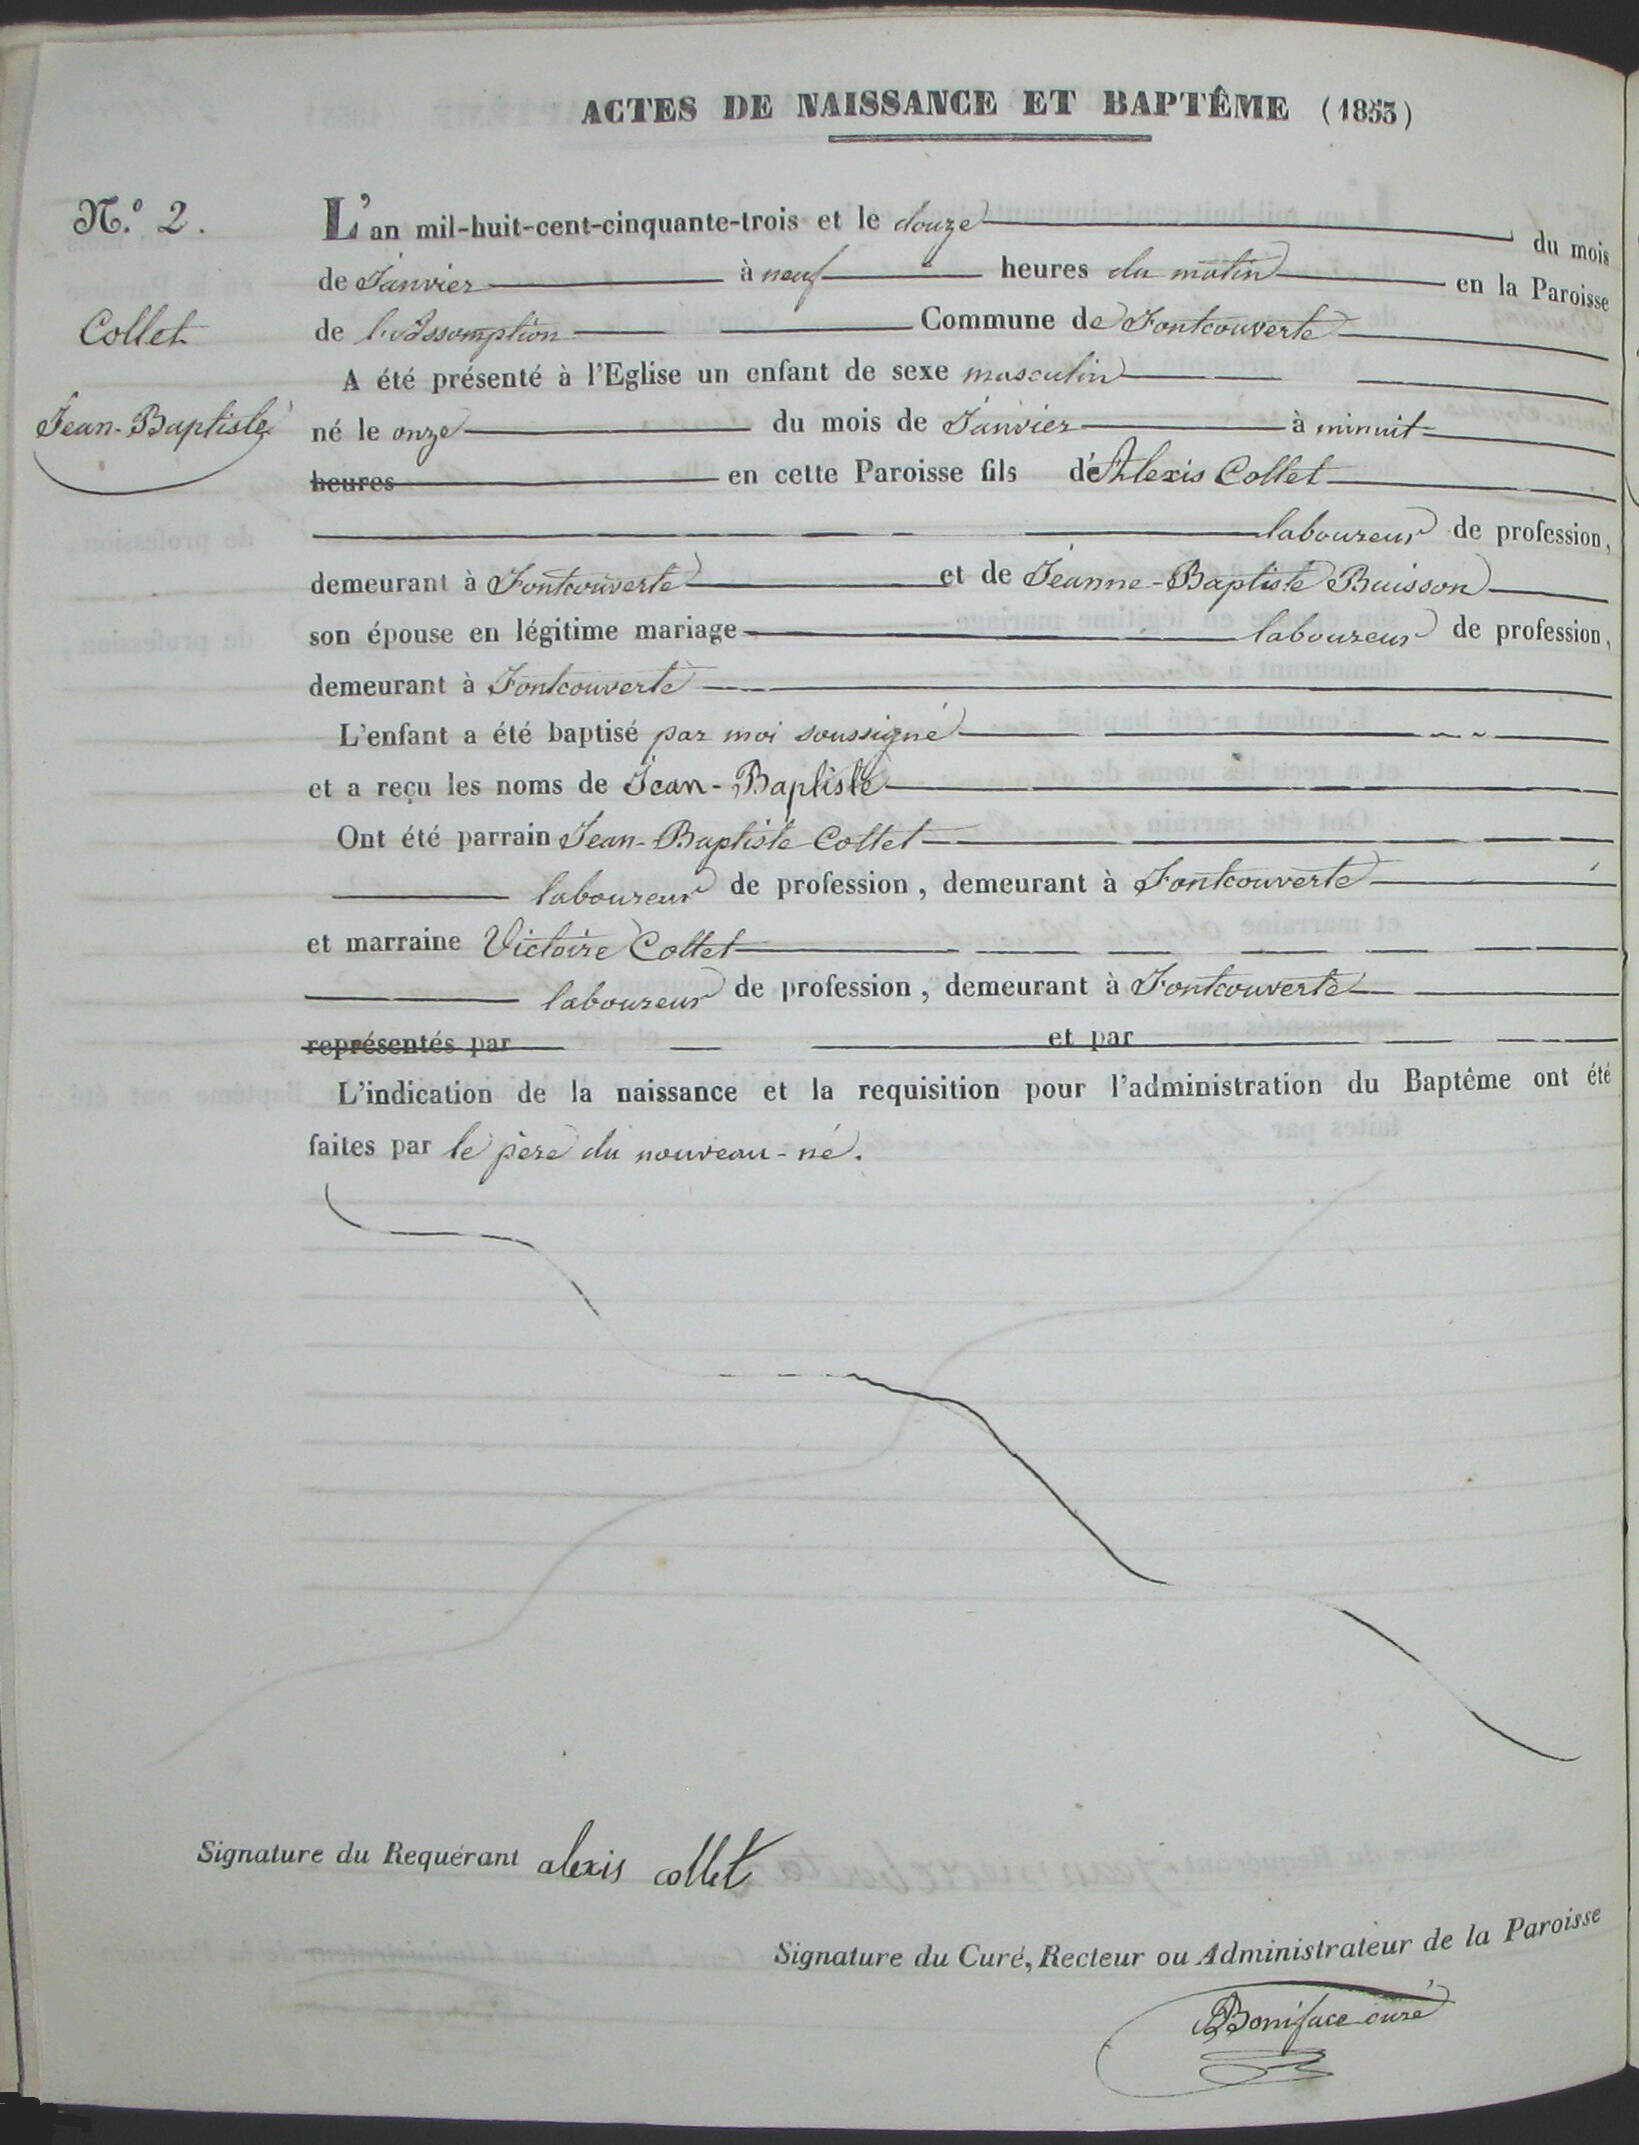 ACTES DE NAISSANCE ET BAPTÊME (1853)
N.º 2.
Collet
Jean-Baptiste
L'an mil-huit-cent-cinquante-trois et le douze du mois
de Janvier à neuf heures du matin en la Paroisse
de l'Assomption Commune de Fontcouverte
A été présenté à l'Eglise un enfant de sexe masculin
né le onze du mois de Janvier à minuit
heures en cette Paroisse fils d'Alexis Collet
laboureur de profession,
demeurant à Fontcouverte et de Jeanne-Baptiste Buisson
son épouse en légitime mariage laboureur de profession,
demeurant à Fontcouverte
L'enfant a été baptisé par moi soussigné
et a reçu les noms de Jean-Baptiste
Ont été parrain Jean-Baptiste Collet
laboureur de profession, demeurant à Fontcouverte
et marraine Victoire Collet
laboureur de profession, demeurant à Fontcouverte
représentés par et par
L'indication de la naissance et la requisition pour l'administration du Baptême ont été
faites par le père du nouveau-né.
Signature du Requérant alexis collet
Signature du Curé, Recteur ou Administrateur de la Paroisse
Boniface curé